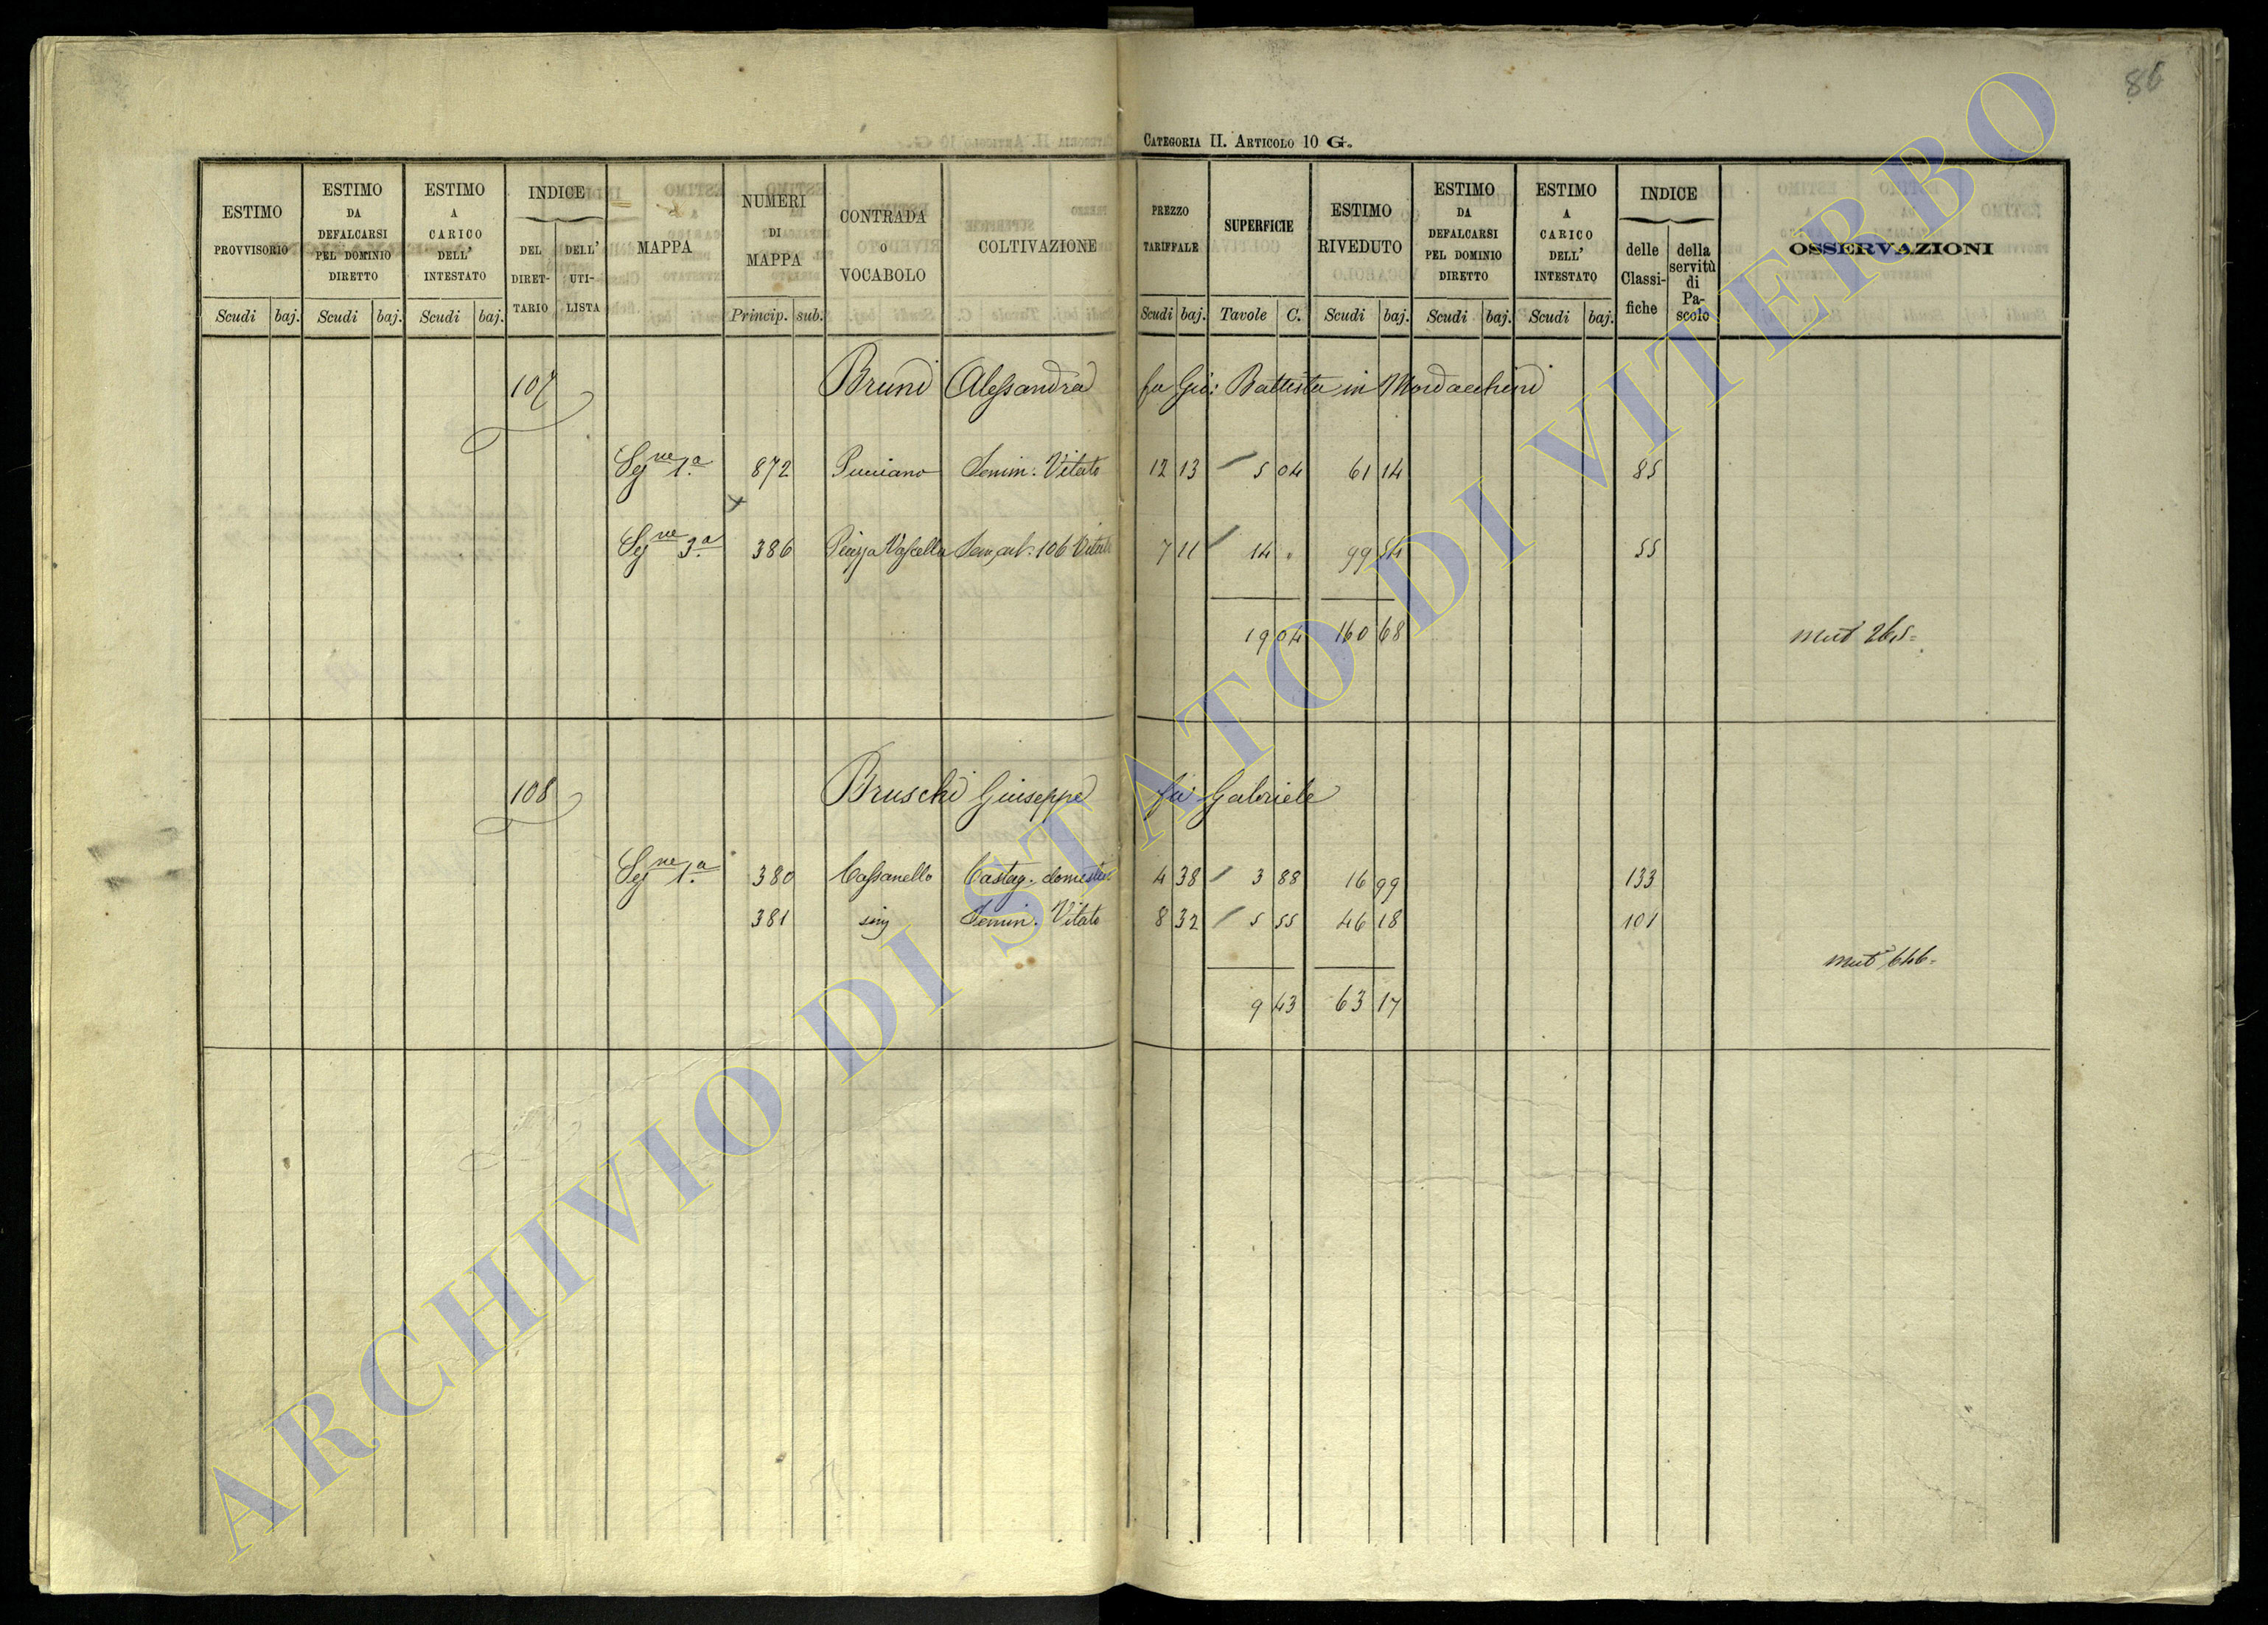 86
CATEGORIA II. ARTICOLO 10 G.
ESTIMO PROVVISORIO
ESTIMO DA DEFALCARSI PEL DOMINIO DIRETTO
ESTIMO A CARICO DELL' INTESTATO
INDICE
DEL DIRETTARIO
DELL' UTILISTA
MAPPA
NUMERI DI MAPPA
CONTRADA O VOCABOLO
COLTIVAZIONE
PREZZO TARIFFALE
SUPERFICIE
ESTIMO RIVEDUTO
ESTIMO DA DEFALCARSI PEL DOMINIO DIRETTO
ESTIMO A CARICO DELL' INTESTATO
INDICE
delle Classifiche
della servitù di Pascolo
OSSERVAZIONI
Scudi baj. Scudi baj. Scudi baj. Princip. sub. Scudi baj. Tavole C. Scudi baj. Scudi baj. Scudi baj.
107 Bruni Alessandra fu Gio: Battista in Mordacchini
Segne 1.a 872 Pucciano Semin. Vitato 12 13 5 04 61 14 85
Segne 3.a 386 Piazza Vascella 106 Vitato 7 11 14 " 99 54 55
19 04 160 68 mut 265=
108 Bruschi Giuseppe fu Gabriele
Segne 1.a 380 Cassanello Castag. domestico 4 38 3 88 16 99 133
381 Semin. Vitato 8 32 5 55 46 18 101
mut 646=
9 43 63 17
ARCHIVIO DI STATO DI VITERBO